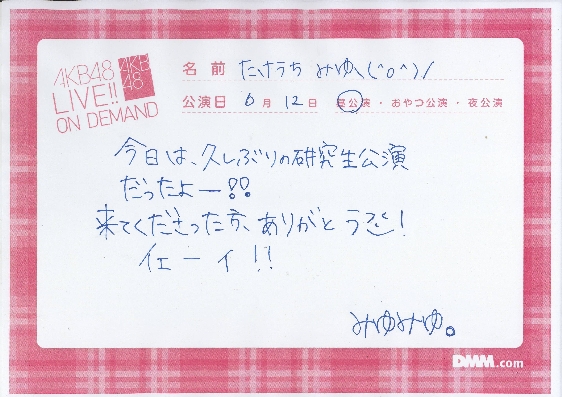 AKB48
LIVE!!
ON DEMAND
AKB
48
名前 たけうち みゆ\(^o^)/
公演日 6月12日 昼公演・おやつ公演・夜公演
今日は、久しぶりの研究生公演
だったよー!!
来てくださった方、ありがとう!
イェーイ!!
みゆみゆ。
DMM.com